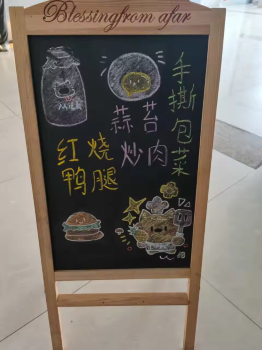 Blessingfrom afar
MILK
手撕包菜
蒜苔
炒肉
红烧
鸭腿